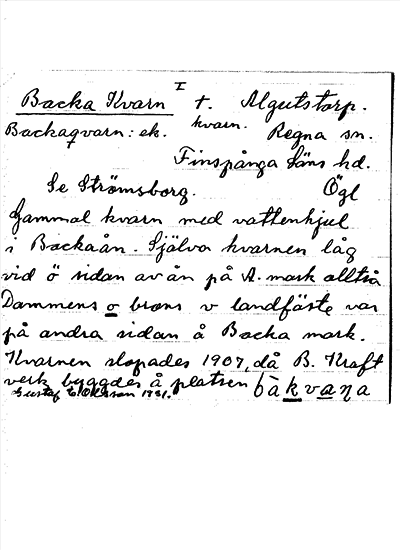 Backa Kvarn I t. Algutstorp.
Backaqvarn: ek. kvarn. Regna sn.
Finspånga läns hd.
Se Strömsborg. Ögl
Gammal kvarn med vattenhjul
i Backaån. Själva kvarnen låg
vid ö sidan av ån på A. mark alltså
Dammens o brons v landfäste var
på andra sidan å Backa mark.
Kvarnen slopades 1907, då B. Kraft
verk byggdes å platsen bàkvana
Gustaf 1931.